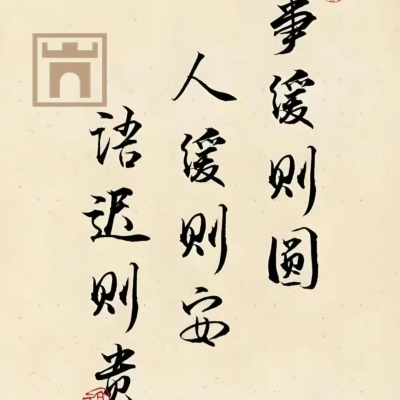 事缓则圆
人缓则安
语迟则贵